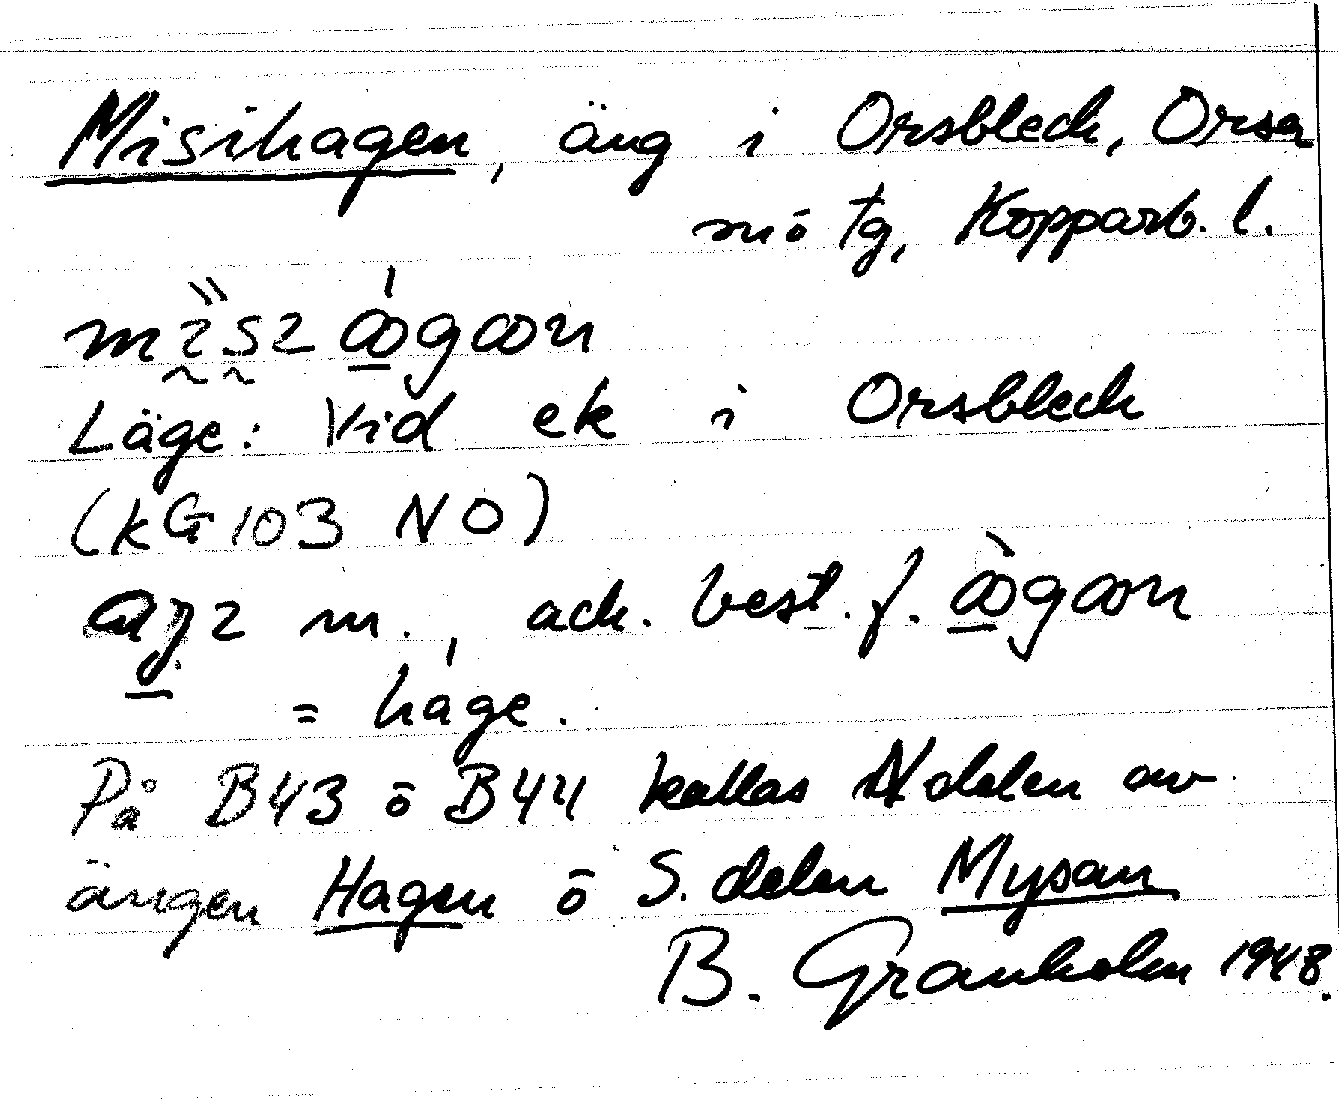 Misihagen, äng i Orsbleck, Orsa
mō tg, Kopparb. l.
Läge: Vid ek i Orsbleck
(kG103 NO)
m., ack. best. f.
= hage.
På B43 ō B44 kallas N delen av
ängen Hagen ō S. delen Mysan
B. Granholm 1948.